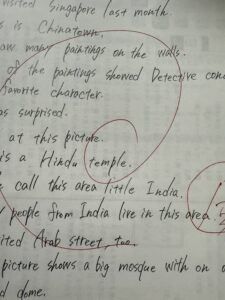 visited Singapore last month.
is Chinatown.
saw many paintings on the walls.
of the paintings showed Detective Con
favorite character.
as surprised.
at this picture.
is a Hindu temple.
call this area little India.
people from India live in this area
ited Arab street, too.
picture shows a big mosque with on
d dome.